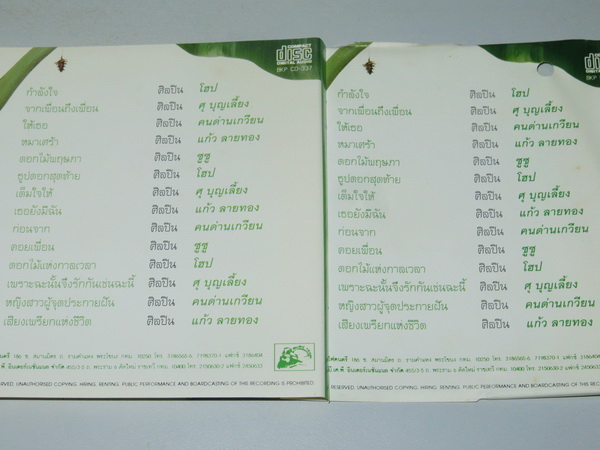 COMPACT
disc
DIGITAL AUDIO
BKP CD-337
กำลังใจ ศิลปิน โฮป
จากเพื่อนถึงเพื่อน ศิลปิน ศุ บุญเลี้ยง
ให้เธอ ศิลปิน คนด่านเกวียน
หมาเศร้า ศิลปิน แก้ว ลายทอง
ดอกไม้พฤษภา ศิลปิน ซูซู
ธูปดอกสุดท้าย ศิลปิน โฮป
เต็มใจให้ ศิลปิน ศุ บุญเลี้ยง
เธอยังมีฉัน ศิลปิน แก้ว ลายทอง
ก่อนจาก ศิลปิน คนด่านเกวียน
คอยเพื่อน ศิลปิน ซูซู
ดอกไม้แห่งกาลเวลา ศิลปิน โฮป
เพราะฉะนั้นจึงรักกันเช่นฉะนี้ ศิลปิน ศุ บุญเลี้ยง
หญิงสาวผู้จุดประกายฝัน ศิลปิน คนด่านเกวียน
เสียงเพรียกแห่งชีวิต ศิลปิน แก้ว ลายทอง
RESERVED. UNAUTHORISED COPYING, HIRING, RENTING, PUBLIC PERFORMANCE AND BOARDCASTING OF THIS RECORDING IS PROHIBITED.
กำลังใจ ศิลปิน โฮป
จากเพื่อนถึงเพื่อน ศิลปิน ศุ บุญเลี้ยง
ให้เธอ ศิลปิน คนด่านเกวียน
หมาเศร้า ศิลปิน แก้ว ลายทอง
ดอกไม้พฤษภา ศิลปิน ซูซู
ธูปดอกสุดท้าย ศิลปิน โฮป
เต็มใจให้ ศิลปิน ศุ บุญเลี้ยง
เธอยังมีฉัน ศิลปิน แก้ว ลายทอง
ก่อนจาก ศิลปิน คนด่านเกวียน
คอยเพื่อน ศิลปิน ซูซู
ดอกไม้แห่งกาลเวลา ศิลปิน โฮป
เพราะฉะนั้นจึงรักกันเช่นฉะนี้ ศิลปิน ศุ บุญเลี้ยง
หญิงสาวผู้จุดประกายฝัน ศิลปิน คนด่านเกวียน
เสียงเพรียกแห่งชีวิต ศิลปิน แก้ว ลายทอง
RESERVED. UNAUTHORISED COPYING, HIRING, RENTING, PUBLIC PERFORMANCE AND BOARDCASTING OF THIS RECORDING